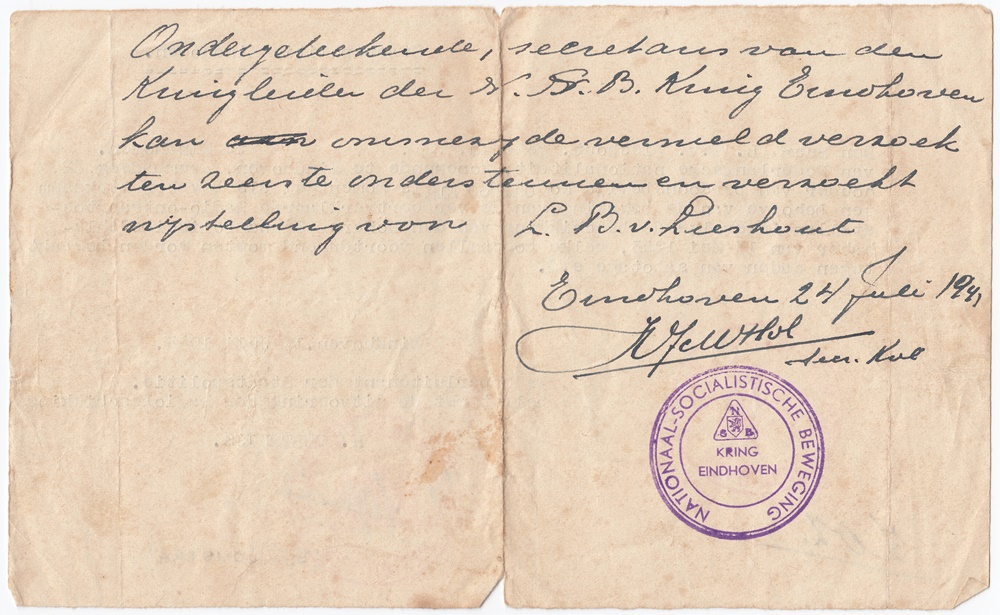 Ondergeteekende, secretaris van den
Kringleider der N.S.B. Kring Eindhoven
kan aan ommezijde vermeld verzoek
ten zeerste ondersteunen en verzoekt
vrijstelling voor L. B. v. Lieshout
Eindhoven 24 Juli 1941
secr. Kol
NATIONAAL-SOCIALISTISCHE BEWEGING
N
S B
KRING
EINDHOVEN